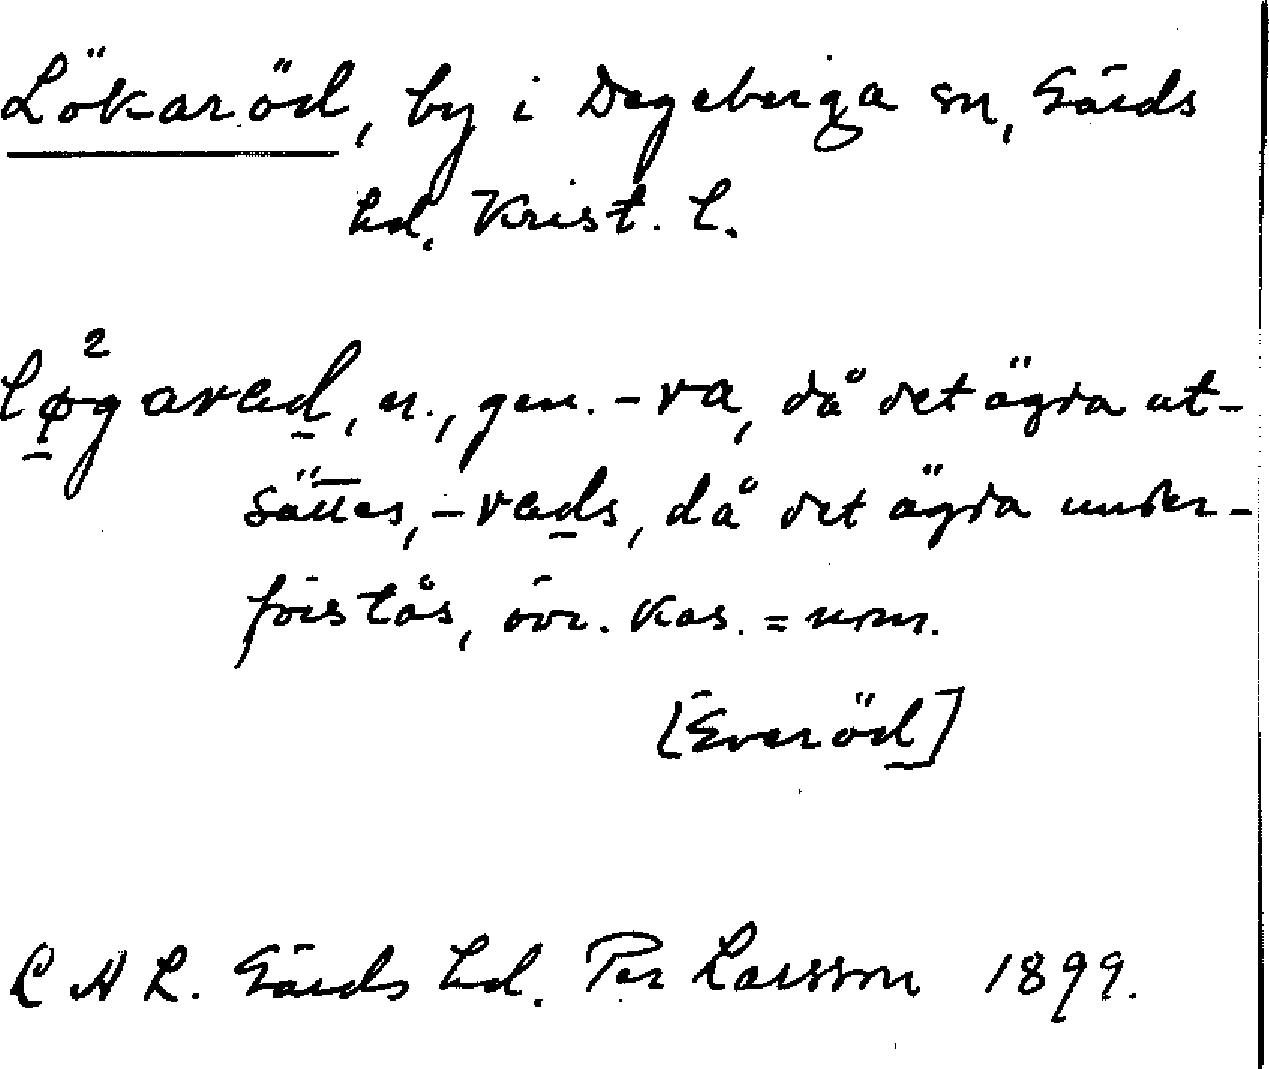 Lökaröd, by i Degeberga sn, Gärds
hd. Krist. l.
lø̱²gavad̲, n., gen. -va, då det ägda ut-
sättes, -vad̲s, då det ägda under-
förstås, övr. kas. = nom.
[Everöd̲]
Gärds hd. Per Larsson 1899.